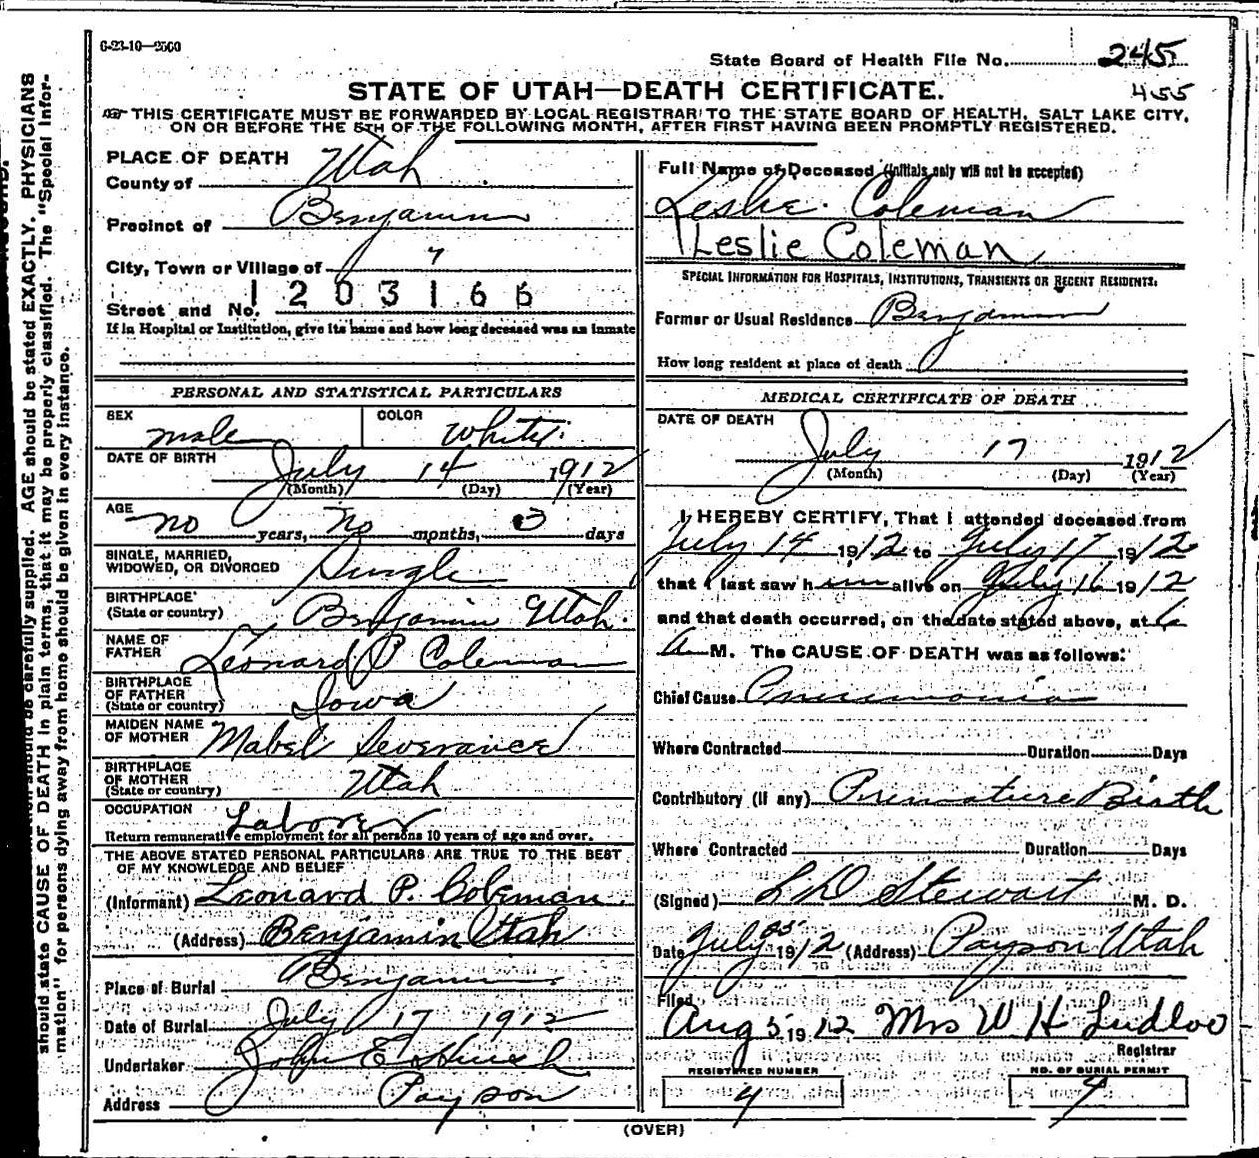 6-23-10—2500
State Board of Health File No. 245
455
STATE OF UTAH—DEATH CERTIFICATE.
THIS CERTIFICATE MUST BE FORWARDED BY LOCAL REGISTRAR TO THE STATE BOARD OF HEALTH, SALT LAKE CITY,
ON OR BEFORE THE 5TH OF THE FOLLOWING MONTH, AFTER FIRST HAVING BEEN PROMPTLY REGISTERED.
PLACE OF DEATH
County of Utah
Precinct of Benjamin
City, Town or Village of "
1203166
Street and No.
If in Hospital or Institution, give its name and how long deceased was an inmate
PERSONAL AND STATISTICAL PARTICULARS
SEX male COLOR White
DATE OF BIRTH July 14 1912
(Month) (Day) (Year)
AGE no years, no months, 3 days
SINGLE, MARRIED,
WIDOWED, OR DIVORCED Single
BIRTHPLACE
(State or country) Benjamin Utah.
NAME OF
FATHER Leonard P Coleman
BIRTHPLACE
OF FATHER
(State or country) Iowa
MAIDEN NAME
OF MOTHER Mabel Severance
BIRTHPLACE
OF MOTHER
(State or country) Utah
OCCUPATION Laborer
Return remunerative employment for all persons 10 years of age and over.
THE ABOVE STATED PERSONAL PARTICULARS ARE TRUE TO THE BEST
OF MY KNOWLEDGE AND BELIEF
(Informant) Leonard P. Coleman
(Address) Benjamin Utah
Place of Burial Benjamin
Date of Burial July 17 1912
Undertaker John E
Address Payson
Full Name of Deceased (Initials only will not be accepted)
Leslie Coleman
Leslie Coleman
SPECIAL INFORMATION FOR HOSPITALS, INSTITUTIONS, TRANSIENTS OR RECENT RESIDENTS.
Former or Usual Residence Benjamin
How long resident at place of death
MEDICAL CERTIFICATE OF DEATH
DATE OF DEATH
July 17 1912
(Month) (Day) (Year)
I HEREBY CERTIFY, That I attended deceased from
July 14 1912 to July 17 1912
that I last saw him alive on July 16 1912
and that death occurred, on the date stated above, at 6
A M. The CAUSE OF DEATH was as follows:
Chief Cause Pneumonia
Where Contracted Duration Days
Contributory (if any) Premature Birth
Where Contracted Duration Days
(Signed) L D Stewart M. D.
Date July 25 1912 (Address) Payson Utah
Filed
Aug 5 1912 Mrs W H Ludlow
Registrar
REGISTERED NUMBER
4
NO. OF BURIAL PERMIT
4
(OVER)
should be carefully supplied. AGE should be stated EXACTLY. PHYSICIANS
should state CAUSE OF DEATH in plain terms, that it may be properly classified. The "Special Infor-
mation" for persons dying away from home should be given in every instance.